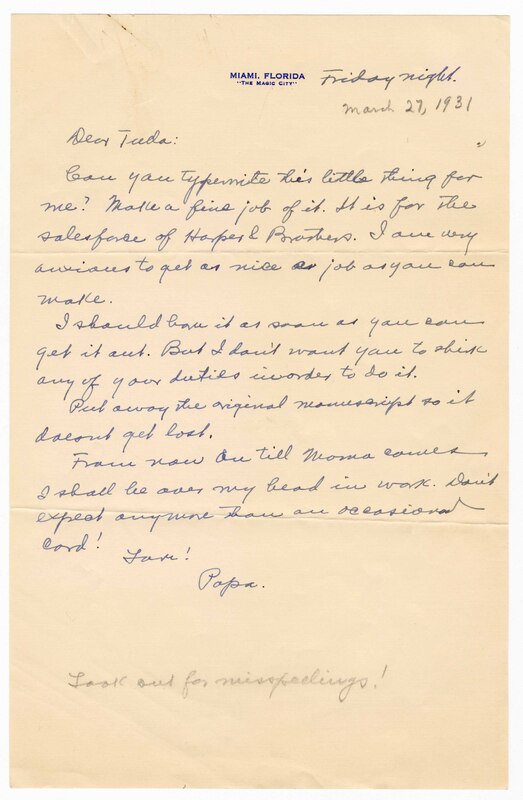 MIAMI, FLORIDA
"THE MAGIC CITY"
Friday night.
March 27, 1931
Dear Tuda:
Can you typewrite this little thing for
me? Make a fine job of it. It is for the
salesforce of Harper & Brothers. I am very
anxious to get as nice a job as you can
make.
I should have it as soon as you can
get it out. But I don't want you to shirk
any of your duties in order to do it.
Put away the original manuscript so it
doesnt get lost.
From now on till Moma comes
I shall be over my head in work. Don't
expect anymore than an occasional
card!
Love!
Popa.
Look out for misspellings!